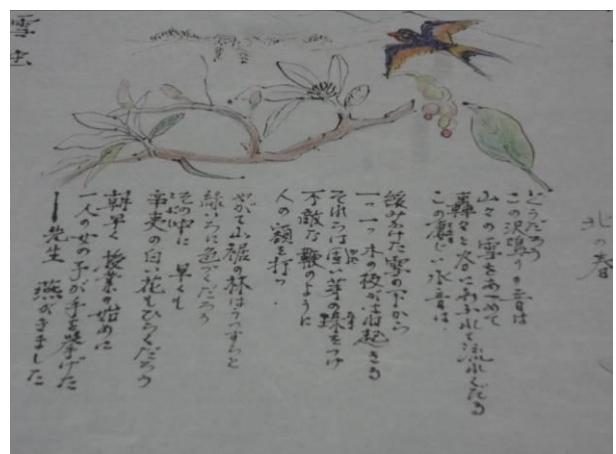 北の春
どうだろう
この沢鳴りの音は
山々の雪をあつめて
轟々と谷にあふれて流れくだる
この凄じい水音は
緩みかけた雪の下から
一つ一つ木の枝がはね起きる
それらは固い芽の珠をつけ
不敵な鞭のように
人の額を打つ
やがて山裾の林はうっすらと
緑いろに色づくだろう
その中に 早くも
辛夷の白い花もひらくだろう
朝早く 授業の始めに
一人の女の子が手を挙げた
―先生 燕がきました
雪